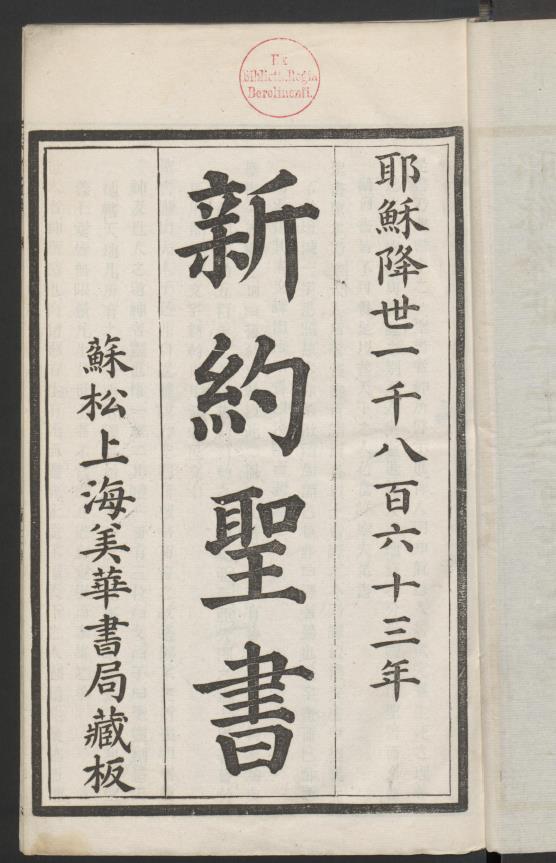 Ex
Biblioth. Regia
Berolinensi.
耶穌降世一千八百六十三年
新約聖書
蘇松上海美華書局藏板